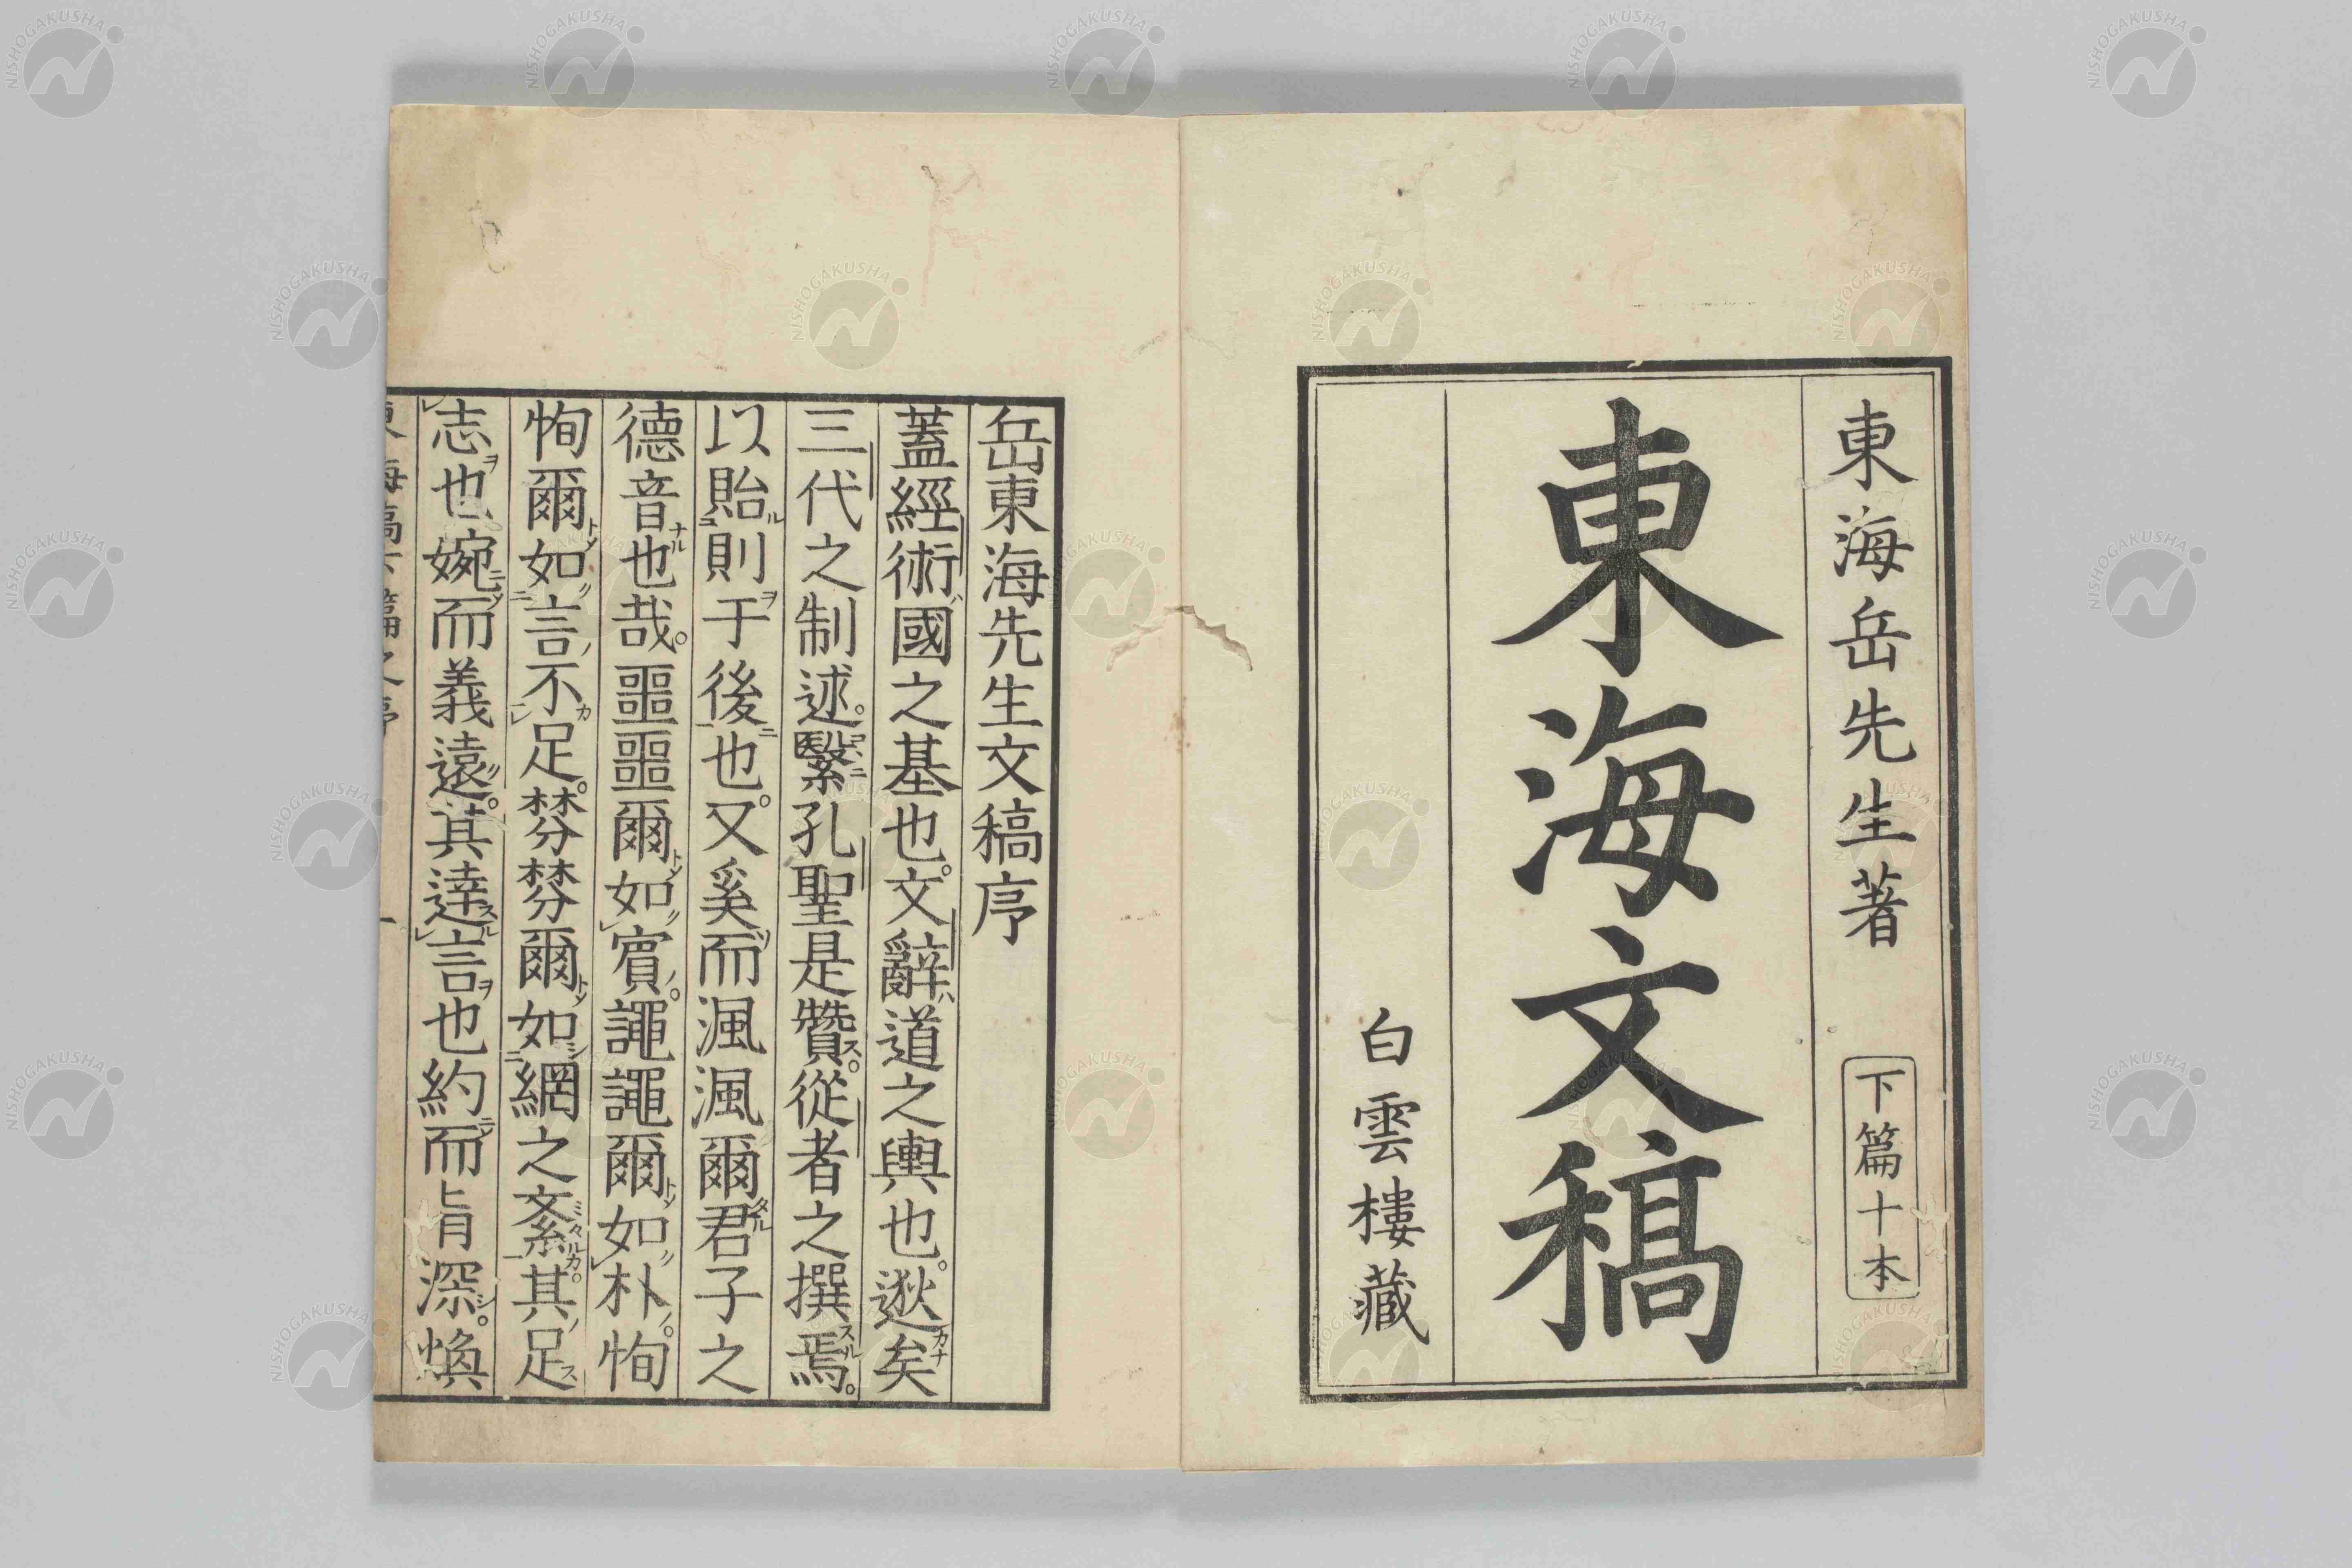 東海岳先生著
下篇十本
東海文稿
白雲樓藏
岳東海先生文稿序
蓋經術國之基也。文辭道之輿也。逖矣
三代之制述。繄孔聖是贊。從者之撰焉。
以貽則于後也。又奚而渢渢爾君子之
德音也哉。噩噩爾如賓。譝譝爾如朴。恂
恂爾如言不足。棼棼爾如網之紊。其足
志也婉而義遠。其達言也約而旨深。煥
NISHOGAKUSHA